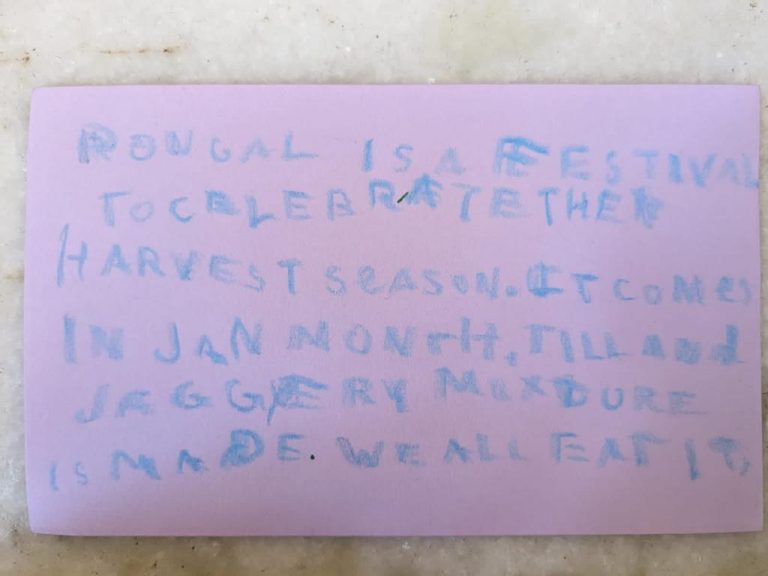 PONGAL IS A FESTIVAL
TO CELEBRATE THE
HARVEST SEASON. IT COMES
IN JAN MONTH. TILL AND
JAGGERY MIXDURE
IS MADE. WE ALL EAT IT.